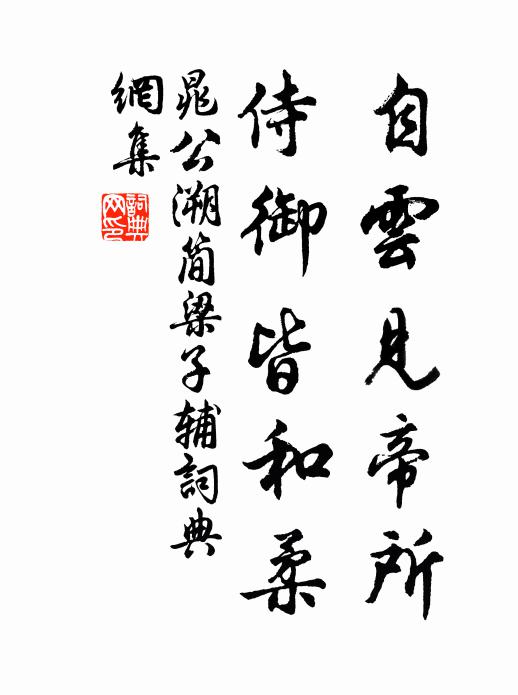 自雲見帝所
侍御皆和柔
晁公溯簡梁子輔詞典
網集
詞典
网印